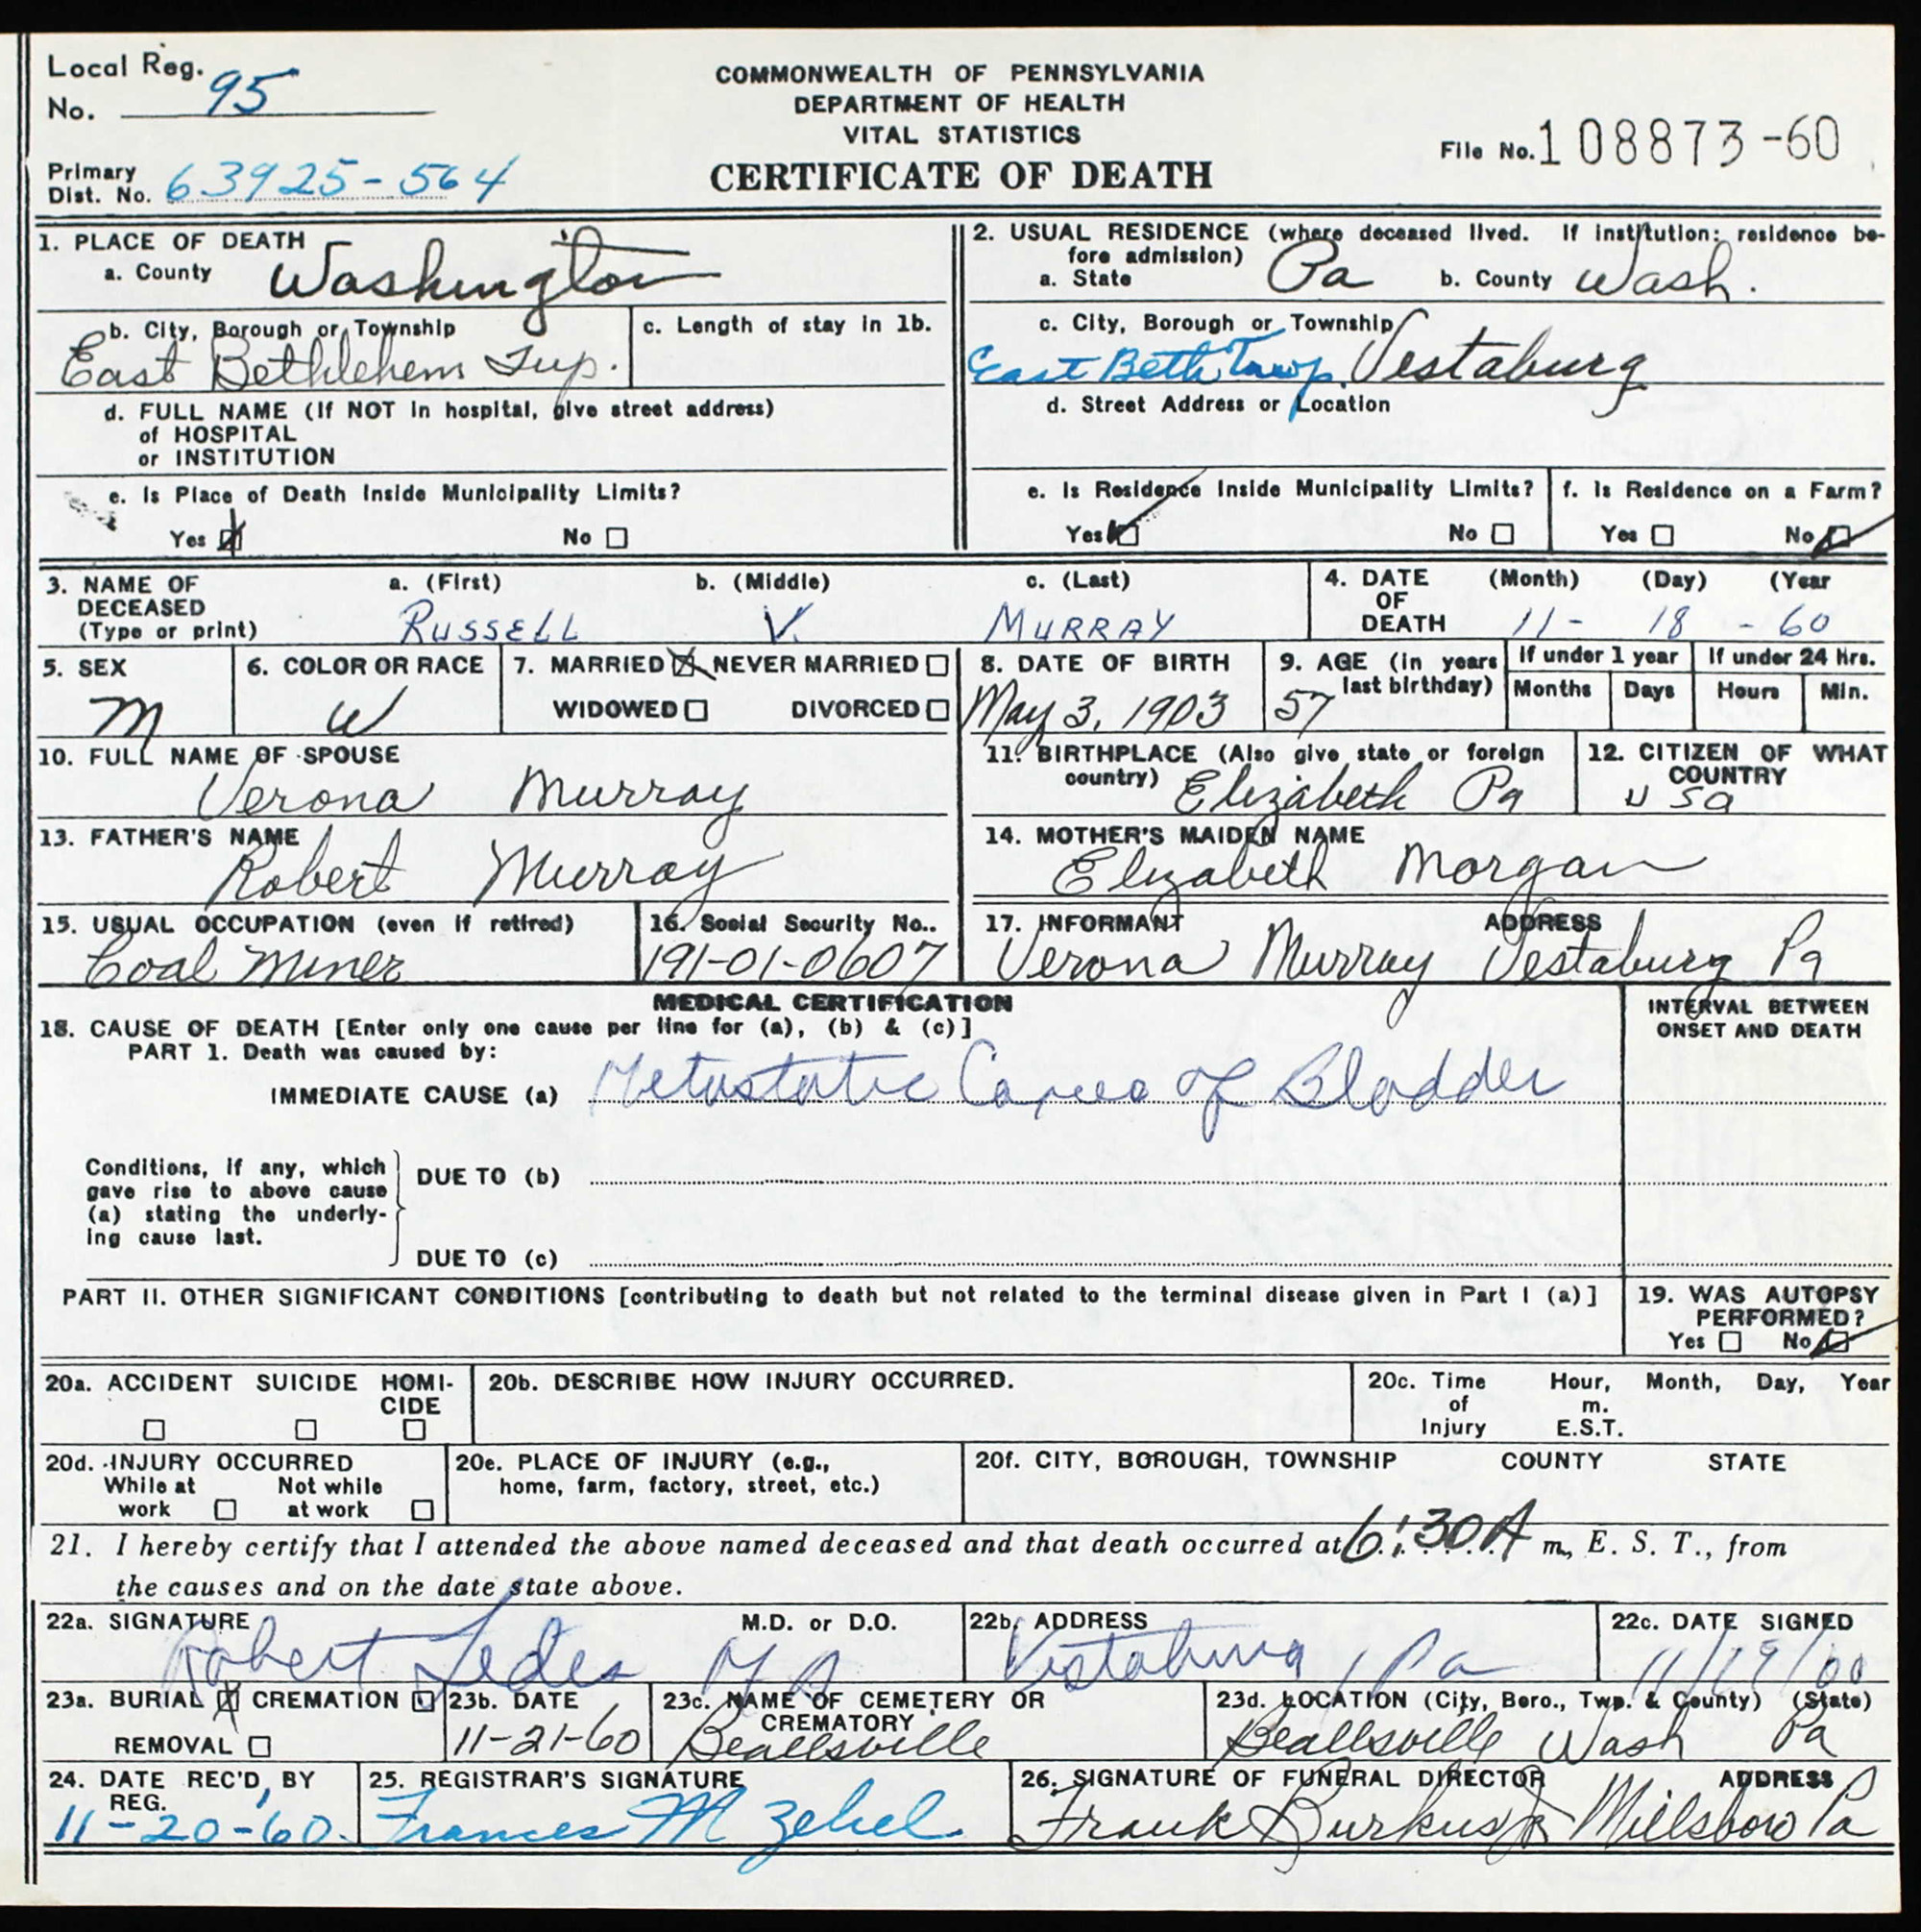 Local Reg. No. 95
COMMONWEALTH OF PENNSYLVANIA
DEPARTMENT OF HEALTH
VITAL STATISTICS
CERTIFICATE OF DEATH
File No. 108873-60
Primary Dist. No. 63925-564
1. PLACE OF DEATH
a. County Washington
b. City, Borough or Township
East Bethlehem Twp.
c. Length of stay in 1b.
d. FULL NAME (If NOT in hospital, give street address)
of HOSPITAL
or INSTITUTION
e. Is Place of Death Inside Municipality Limits?
Yes No
2. USUAL RESIDENCE (where deceased lived. If institution: residence be-
fore admission)
a. State Pa b. County Wash.
c. City, Borough or Township
East Beth Twp. Vestaburg
d. Street Address or Location
e. Is Residence Inside Municipality Limits?
Yes No
f. Is Residence on a Farm?
Yes No
3. NAME OF DECEASED (Type or print)
a. (First) b. (Middle) c. (Last)
RUSSELL V. MURRAY
4. DATE OF DEATH (Month) (Day) (Year
11- 18 - 60
5. SEX
M
6. COLOR OR RACE
W
7. MARRIED NEVER MARRIED
WIDOWED DIVORCED
8. DATE OF BIRTH
May 3, 1903
9. AGE (in years last birthday)
57
If under 1 year
Months Days
If under 24 Hrs.
Hours Min.
10. FULL NAME OF SPOUSE
Verona Murray
11. BIRTHPLACE (Also give state or foreign country)
Elizabeth Pa
12. CITIZEN OF WHAT COUNTRY
USA
13. FATHER'S NAME
Robert Murray
14. MOTHER'S MAIDEN NAME
Elizabeth Morgan
15. USUAL OCCUPATION (even if retired)
Coal Miner
16. Social Security No..
191-01-0607
17. INFORMANT ADDRESS
Verona Murray Vestaburg Pa
MEDICAL CERTIFICATION
18. CAUSE OF DEATH [Enter only one cause per line for (a), (b) & (c)]
PART 1. Death was caused by:
IMMEDIATE CAUSE (a) Metastatic of Bladder
INTERVAL BETWEEN
ONSET AND DEATH
Conditions, if any, which
gave rise to above cause
(a) stating the underly-
ing cause last.
DUE TO (b)
DUE TO (c)
PART II. OTHER SIGNIFICANT CONDITIONS [contributing to death but not related to the terminal disease given in Part I (a)]
19. WAS AUTOPSY PERFORMED?
Yes No
20a. ACCIDENT SUICIDE HOMI-
CIDE
20b. DESCRIBE HOW INJURY OCCURRED.
20c. Time of Injury Hour, Month, Day, Year
m.
E.S.T.
20d. INJURY OCCURRED
While at work Not while at work
20e. PLACE OF INJURY (e.g.,
home, farm, factory, street, etc.)
20f. CITY, BOROUGH, TOWNSHIP COUNTY STATE
21. I hereby certify that I attended the above named deceased and that death occurred at 6:30 A m., E. S. T., from
the causes and on the date state above.
22a. SIGNATURE M.D. or D.O.
Robert
22b. ADDRESS
Vestaburg, Pa
22c. DATE SIGNED
11/19/60
23a. BURIAL CREMATION
REMOVAL
23b. DATE
11-21-60
23c. NAME OF CEMETERY OR
CREMATORY
Beallsville
23d. LOCATION (City, Boro., Twp. & County) (State)
Beallsville Wash Pa
24. DATE REC'D, BY
REG.
11-20-60.
25. REGISTRAR'S SIGNATURE
Frances M
26. SIGNATURE OF FUNERAL DIRECTOR ADDRESS
Frank Burkus Jr Millsboro Pa